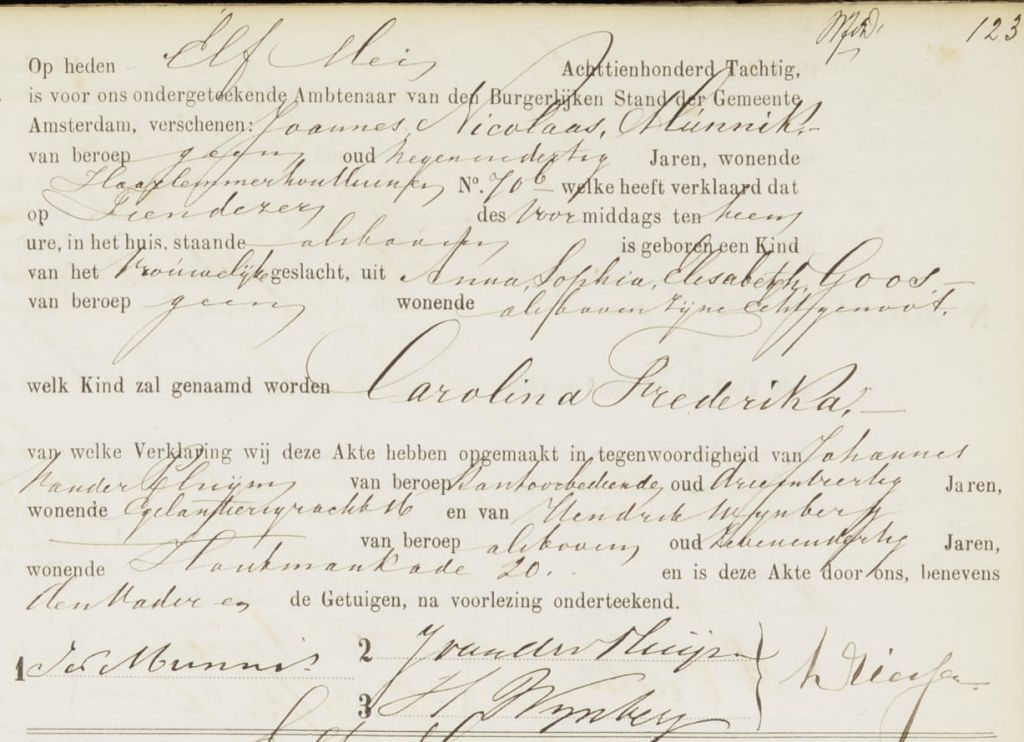 123
Op heden Elf Mei Achttienhonderd Tachtig,
is voor ons ondergeteekende Ambtenaar van den Burgerlijken Stand der Gemeente
Amsterdam, verschenen: Joannes, Nicolaas, Munnik.
van beroep geen oud negenendertig Jaren, wonende
Haarlemmerhouttuinen No. 70 b welke heeft verklaard dat
op Tiendezer des Voor middags ten
ure, in het huis, staande alsboven is geboren een Kind
van het Vrouwelijk geslacht, uit Anna, Sophia, Elisabeth, Goos,
van beroep geen wonende alsboven zijne Echtgenoot.
welk Kind zal genaamd worden Carolina Frederika,
van welke Verklaring wij deze Akte hebben opgemaakt in tegenwoordigheid van Johannes
van der Pluijm van beroep Kantoorbediende oud drieentwintig Jaren,
wonende Egelantiersgracht 16 en van Hendrik Wijnberg
van beroep alsboven oud zevenendertig Jaren,
wonende Houtmankade 20. en is deze Akte door ons, benevens
den Vader en de Getuigen, na voorlezing onderteekend.
1 Js Munnik 2 J van der Pluijm
3 H Wijnberg